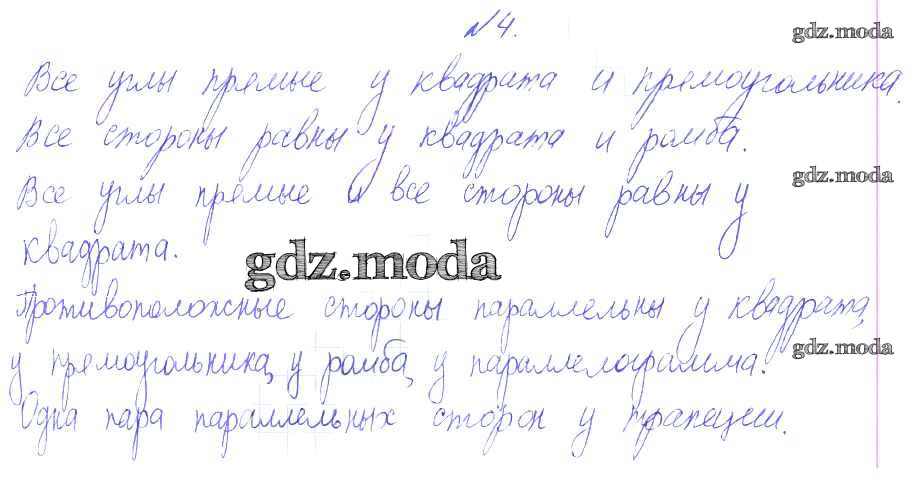 №4.
gdz.moda
Все углы прямые у квадрата и прямоугольника.
Все стороны равны у квадрата и ромба.
gdz.moda
Все углы прямые и все стороны равны у
квадрата.
gdz.moda
Противоположные стороны параллельны у квадрата,
у прямоугольника, у ромба, у параллелограмма.
gdz.moda
Одна пара параллельных сторон у трапеции.